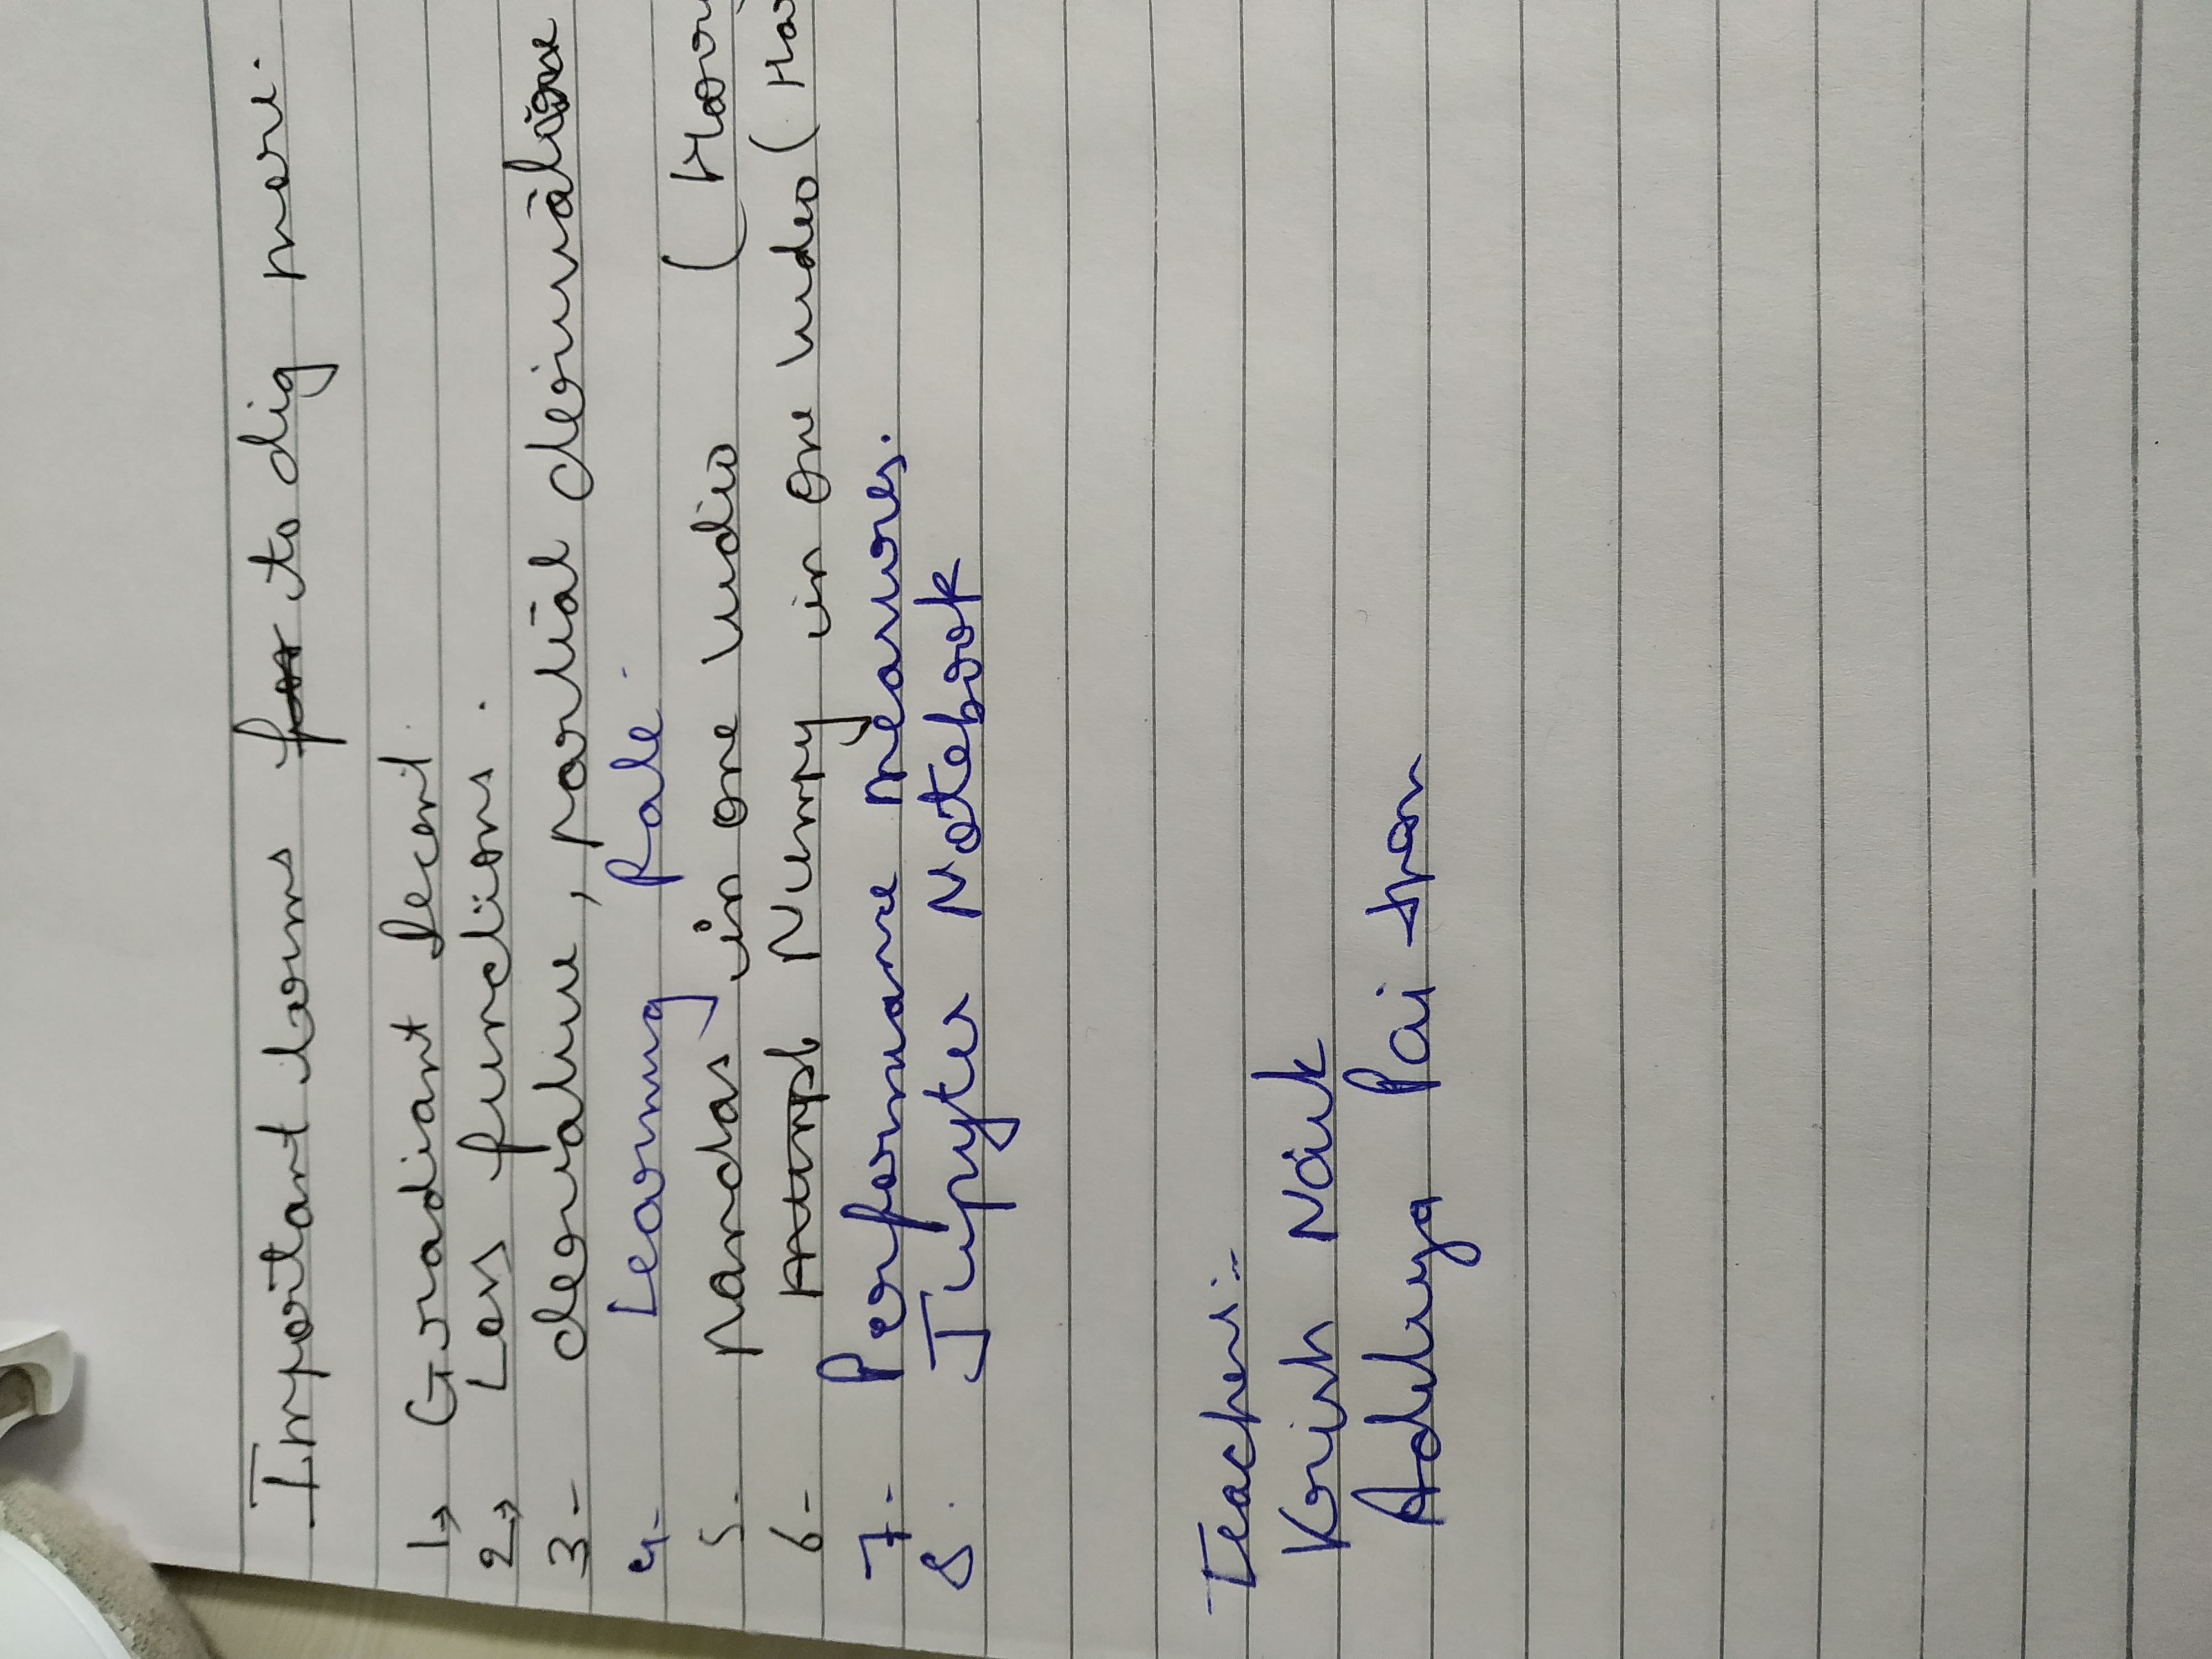 Important terms to dig more.
1, Gradiant Decent.
2, Loss functions.
3- derivative, partial derivative
4- Learning Rate -
5. pandas in one vedio (Harr
6- Numpy in one vedio (Ha
7- Performance measures.
8. Jupyter Notebook
Teachers:-
Krish Naik
Aditya Pai